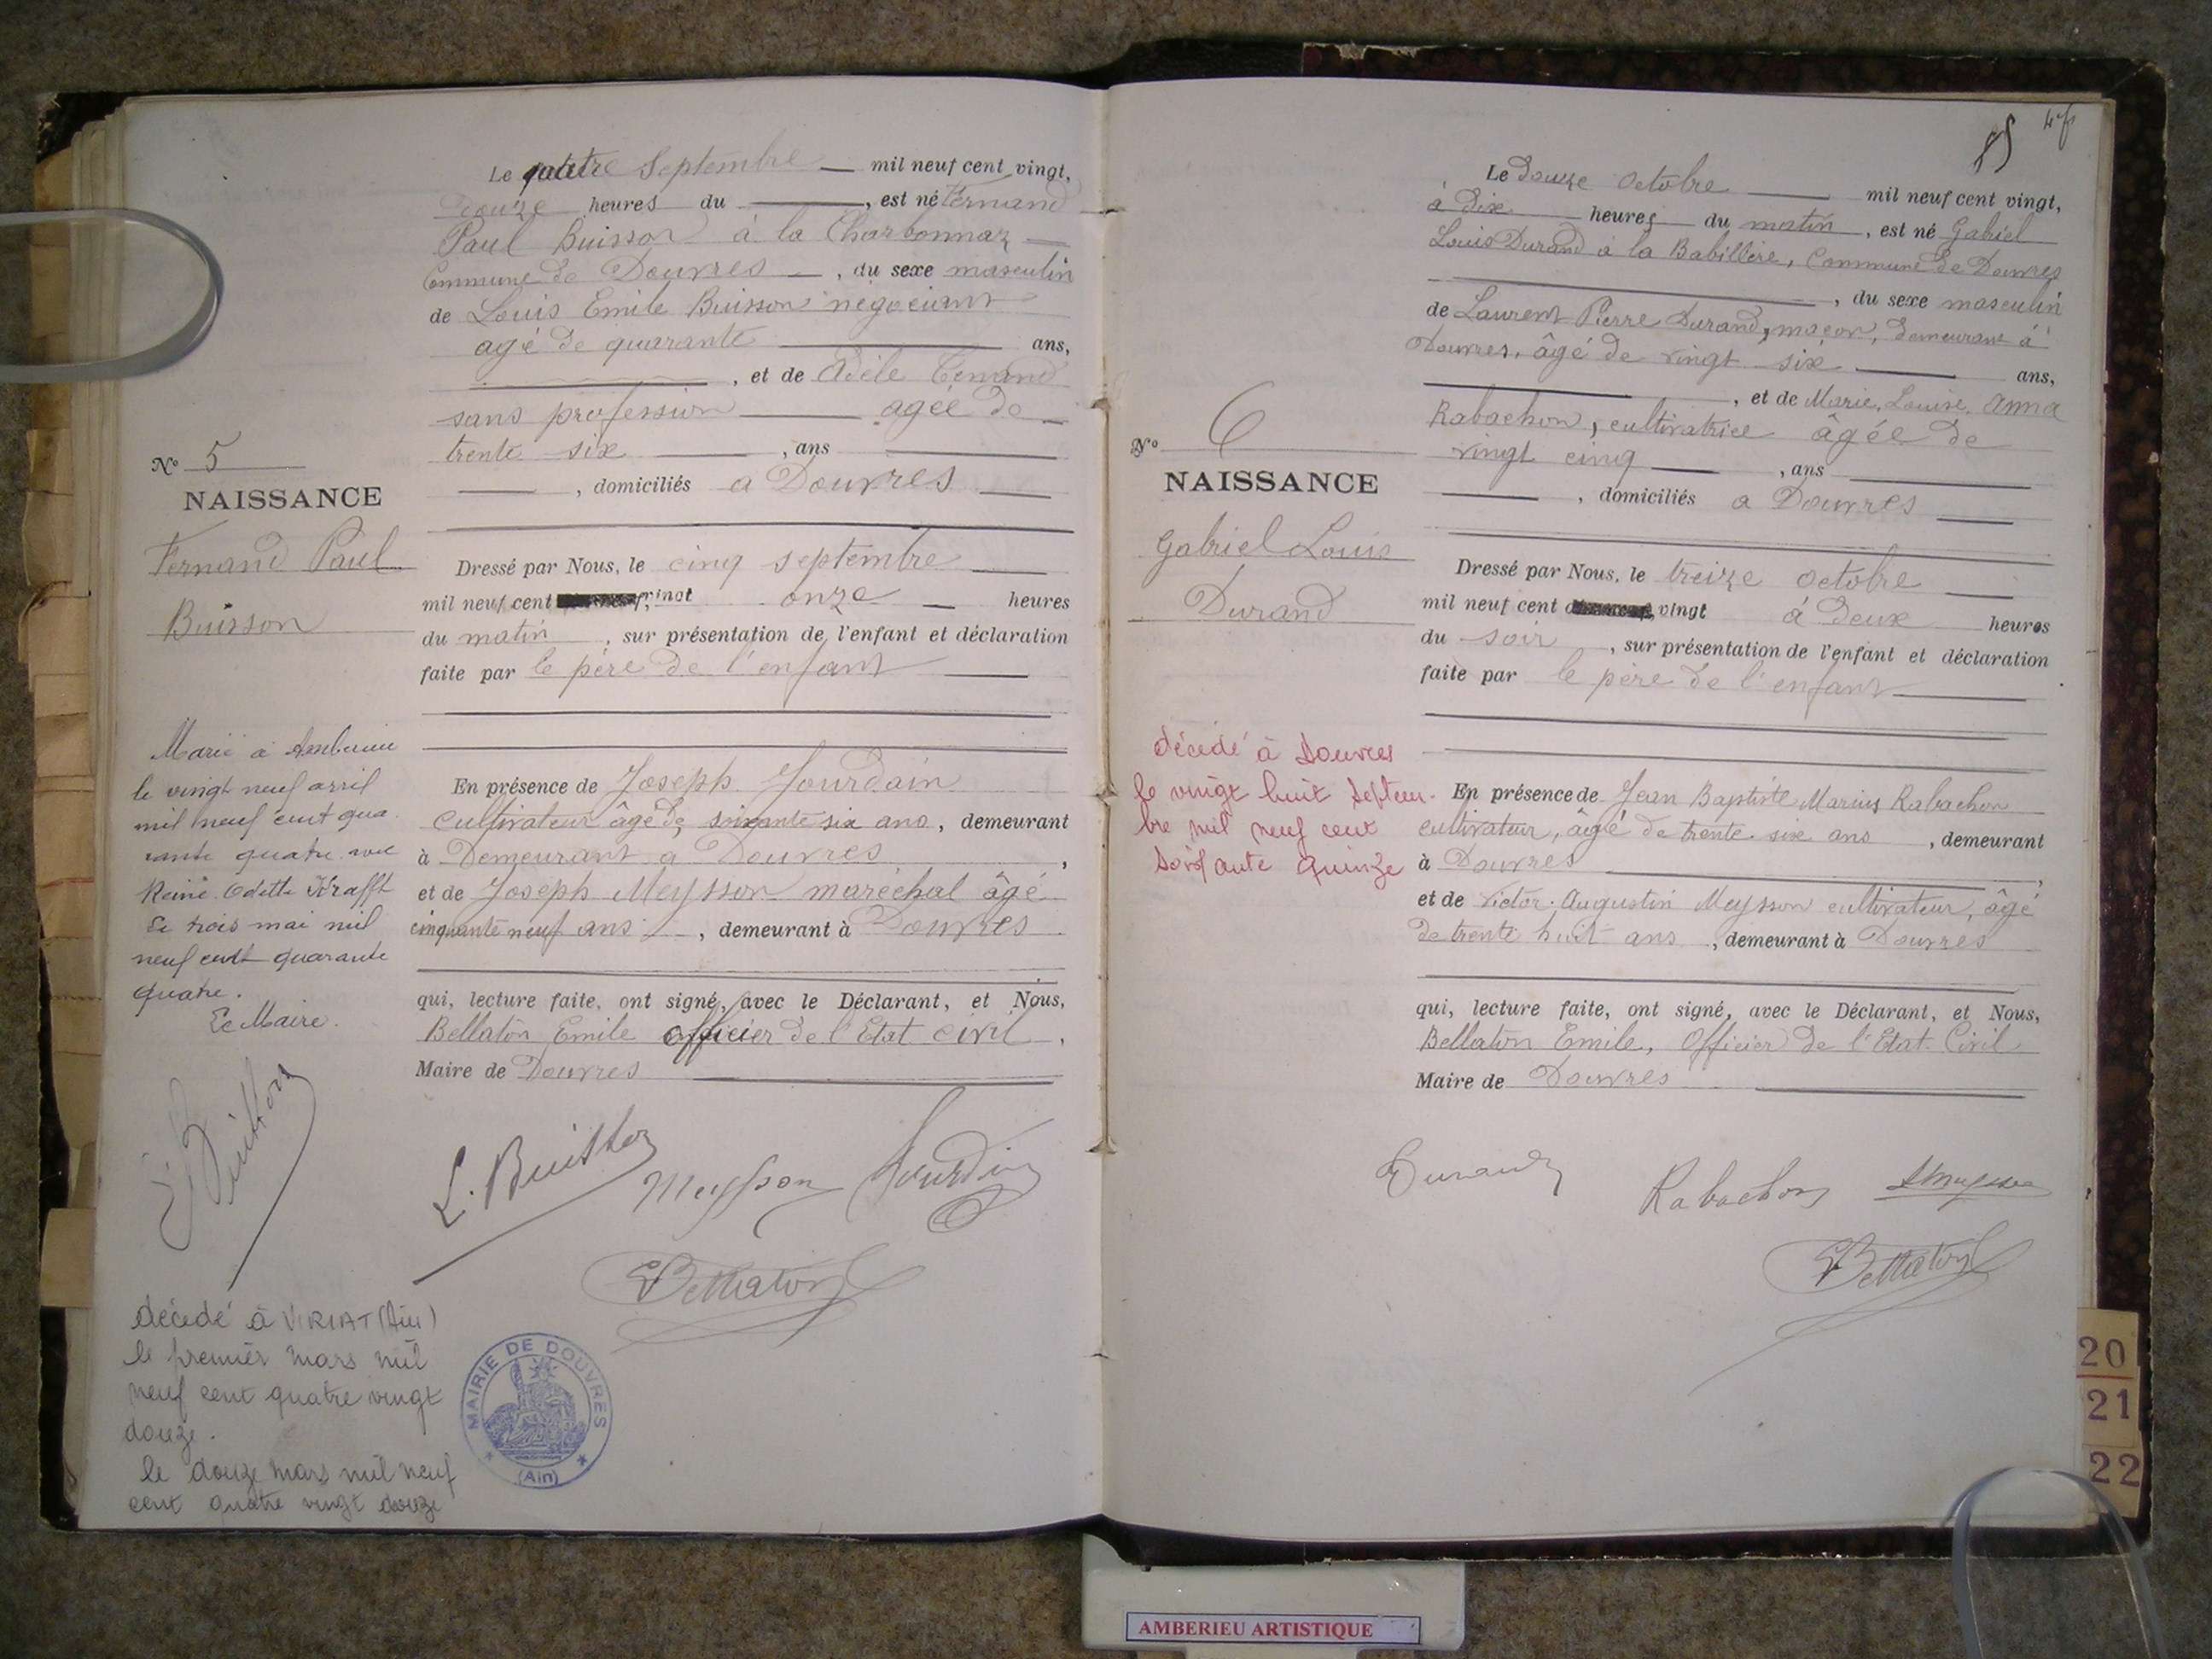 Le quatre Septembre mil neuf cent vingt,
douze heures du , est né Fernand
Paul Buisson à la Charbonnaz
Commune de Douvres , du sexe masculin
de Louis Emile Buisson négociant
agé de quarante ans,
, et de Adèle
sans profession agée de
trente six , ans
, domiciliés a Douvres
No 5
NAISSANCE
Fernand Paul
Buisson
Dressé par Nous, le cinq septembre
mil neuf cent vingt onze heures
du matin , sur présentation de l'enfant et déclaration
faite par le père de l'enfant
Marié à Ambérieu
le vingt neuf avril
mil neuf cent qua
rante quatre avec
Reine Odette Krafft
Le trois mai mil
neuf cent quarante
quatre.
Le Maire.
En présence de Joseph Jourdain
cultivateur âgé de soixante six ans, demeurant
à Demeurant a Douvres ,
et de Joseph Meysson maréchal âgé
cinquante neuf ans , demeurant à Douvres
qui, lecture faite, ont signé, avec le Déclarant, et Nous,
Bellaton Emile officier de l'Etat civil ,
Maire de Douvres
L. Buisson
Meysson
Jourdain
EBellaton
décédé à VIRIAT (Ain)
le premier mars mil
neuf cent quatre vingt
douze.
le douze mars mil neuf
cent quatre vingt douze
MAIRIE DE DOUVRES
(Ain)
85
Le Douze Octobre mil neuf cent vingt,
à Dix heures du matin , est né Gabriel
Louis Durand à la Babillère, Commune de Douvres
, du sexe masculin
de Laurent Pierre Durand, maçon, demeurant à
Douvres, âgé de vingt six ans,
, et de Marie, Louise, Anna
Rabachon, cultivatrice âgée de
vingt cinq , ans
, domiciliés a Douvres
No 6
NAISSANCE
Gabriel Louis
Durand
Dressé par Nous, le treize octobre
mil neuf cent vingt à deux heures
du soir , sur présentation de l'enfant et déclaration
faite par le père de l'enfant
décédé à Douvres
le vingt huit septem-
bre mil neuf cent
soixante quinze
En présence de Jean Baptiste Marius Rabachon
cultivateur, âgé de trente six ans , demeurant
à Douvres ,
et de Victor Augustin Meysson cultivateur, âgé
de trente huit ans , demeurant à Douvres
qui, lecture faite, ont signé, avec le Déclarant, et Nous,
Bellaton Emile, Officier de l'Etat Civil
Maire de Douvres
Durand
Rabachon
EBellaton
20
21
22
AMBERIEU ARTISTIQUE